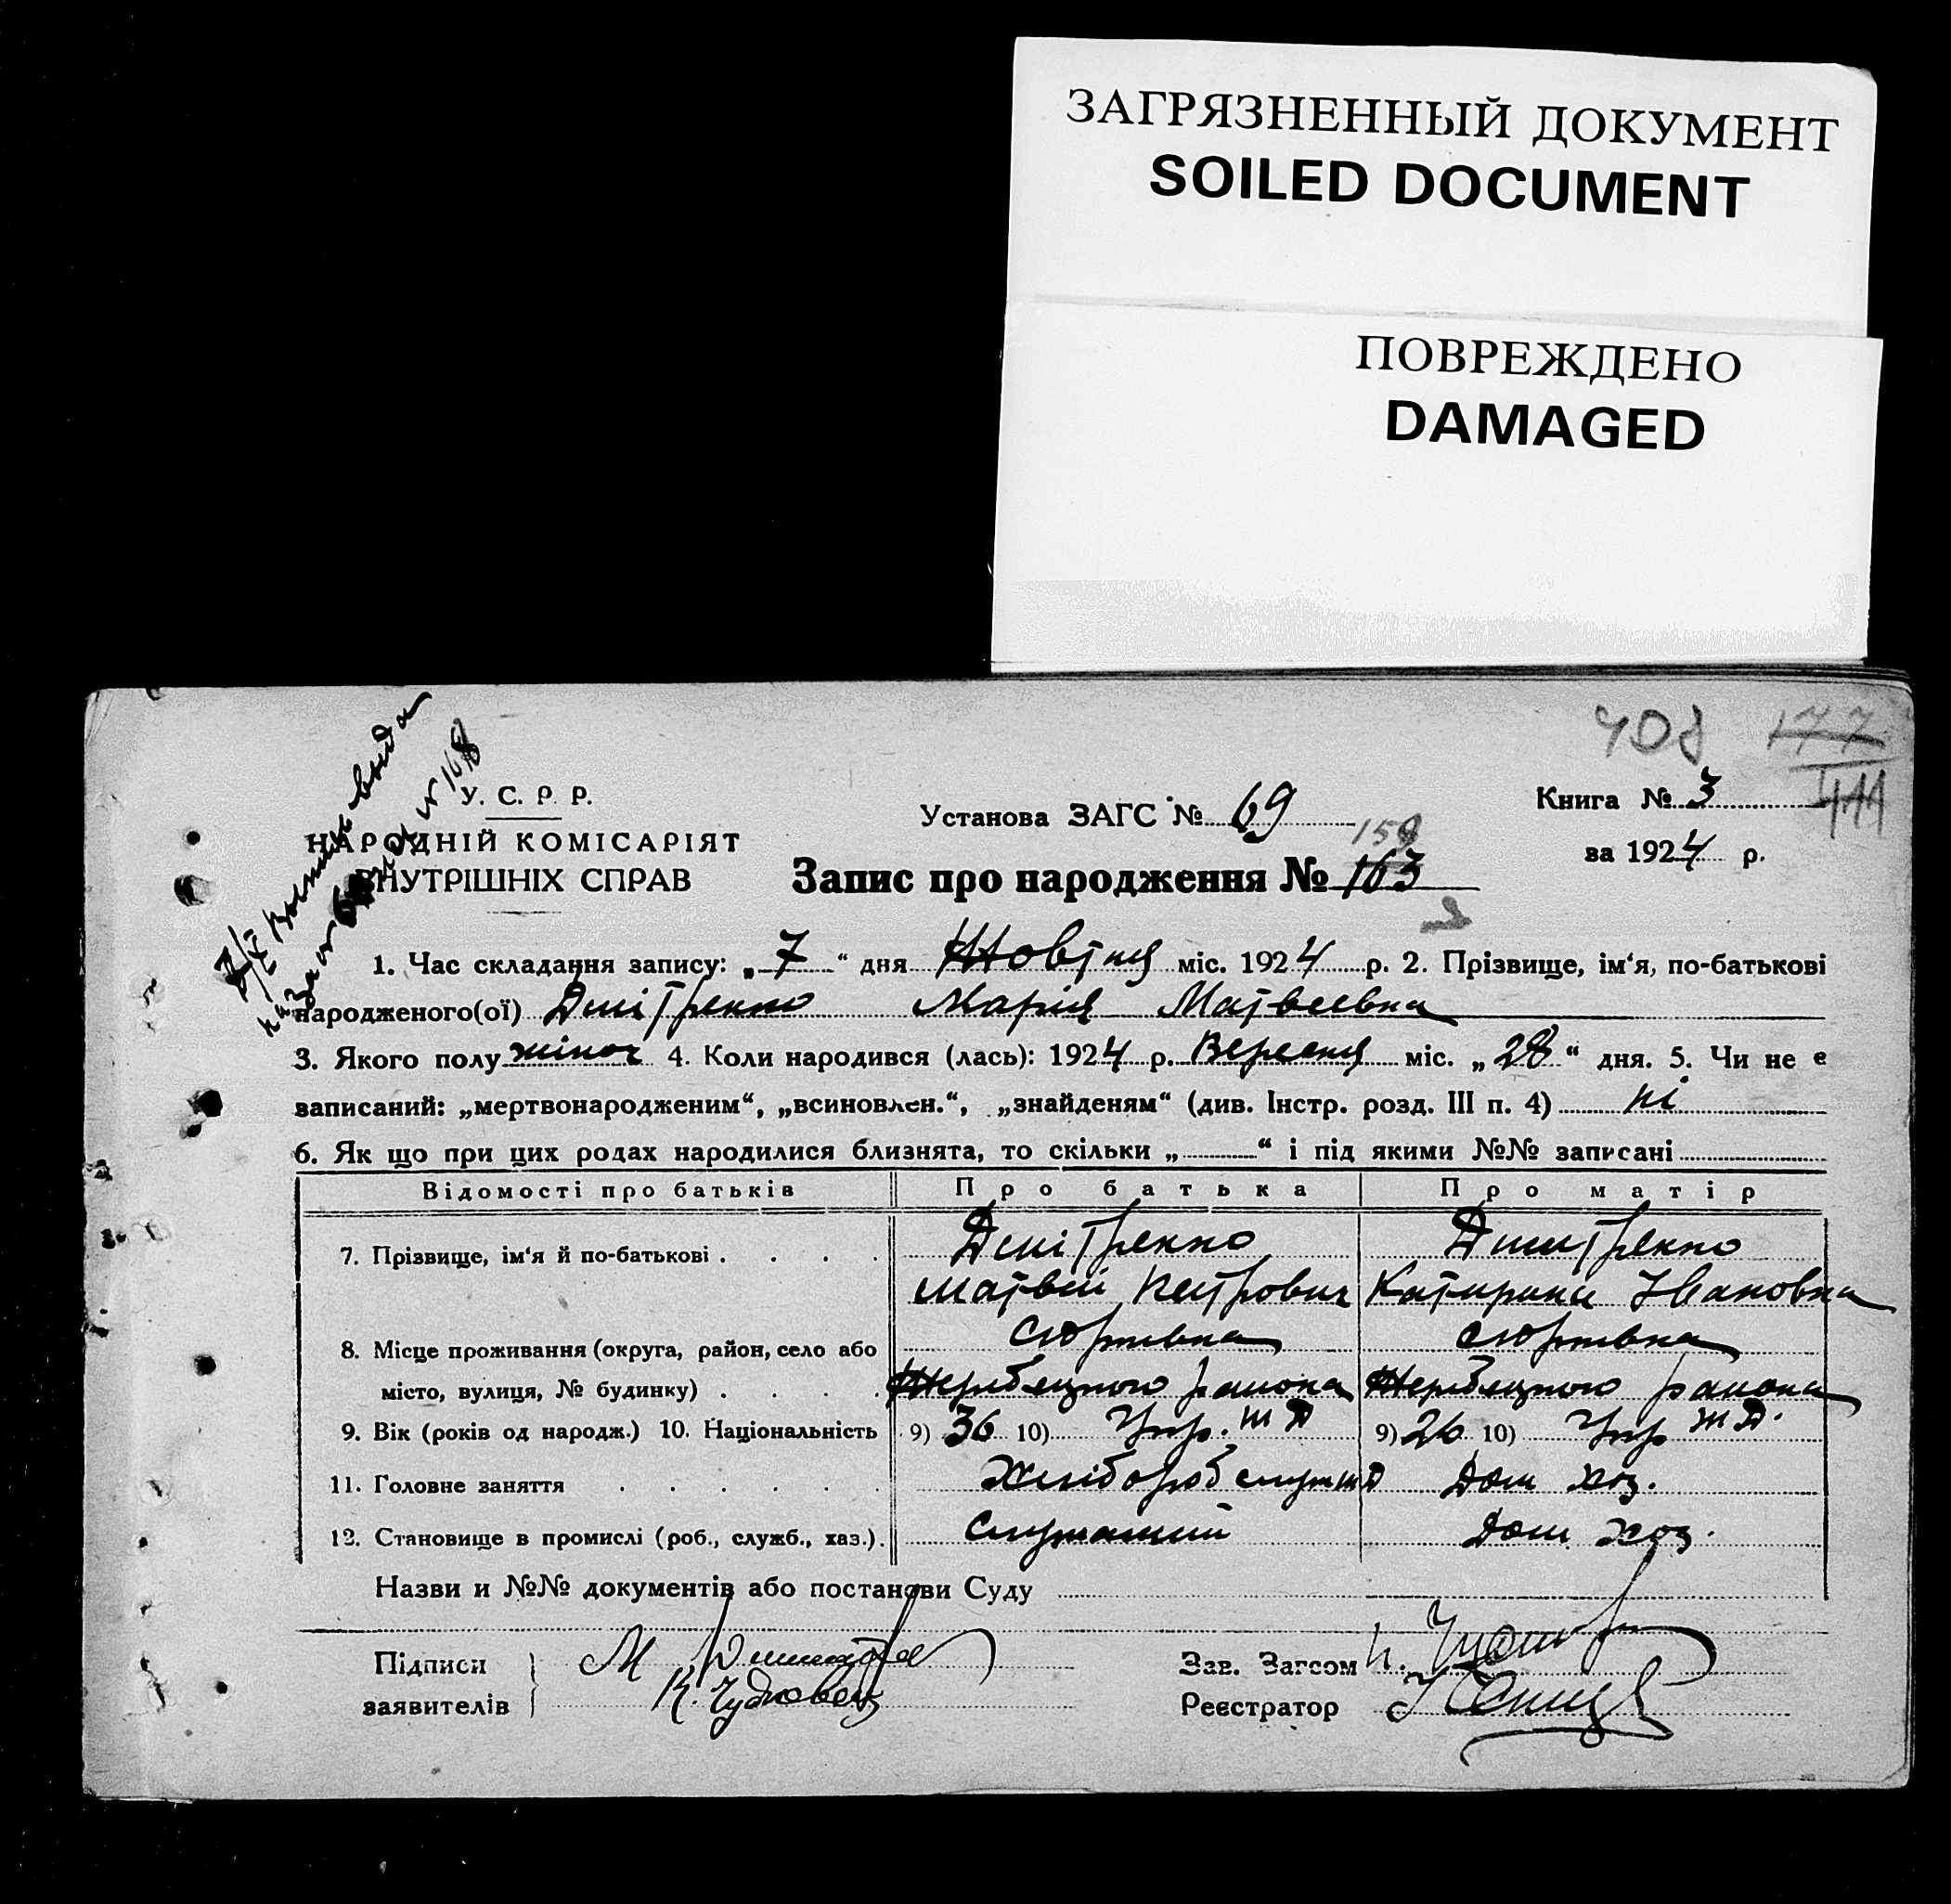 ЗАГРЯЗНЕННЫЙ ДОКУМЕНТ
SOILED DOCUMENT
ПОВРЕЖДЕНО
DAMAGED
408 177
У. С. Р. Р.
НАРОДНІЙ КОМІСАРІЯТ
ВНУТРІШНІХ СПРАВ
Установа ЗАГС № 69
Книга № 3
за 1924 р.
159
Запис про народження № 163
1. Час складання запису: „7“ дня Жовтня міс. 1924 р. 2. Прізвище, ім‘я, по-батькові
народженого(ої) Дмітренко Марія Матвеевна
3. Якого полу жіноч 4. Коли народився (лась): 1924 р. Вересня міс. „28“ дня. 5. Чи не є
записаний: „мертвонародженим“, „всиновлен.“, „знайденям“ (див. Інстр. розд. III п. 4) ні
6. Як що при цих родах народилися близнята, то скільки „ “ і під якими №№ записані
Відомості про батьків Про батька Про матір
7. Прізвище, ім‘я й по-батькові . . . . Дмітренко Дмитренко
Матвій Петрович Катирина Івановна
8. Місце проживання (округа, район, село або Юрківка Юрківка
місто, вулиця, № будинку) . . . . района района
9. Вік (років од народж.) 10. Національність 9) 36 10) Укр. 9) 26 10) Укр
11. Головне заняття . . . . . . Хлібороб Дом хоз.
12. Становище в промислі (роб., служб., хаз.). Служащий Дом хоз.
Назви и №№ документів або постанови Суду
Підписи М
заявителів К. Чудновец
Зав. Загсом
Реєстратор